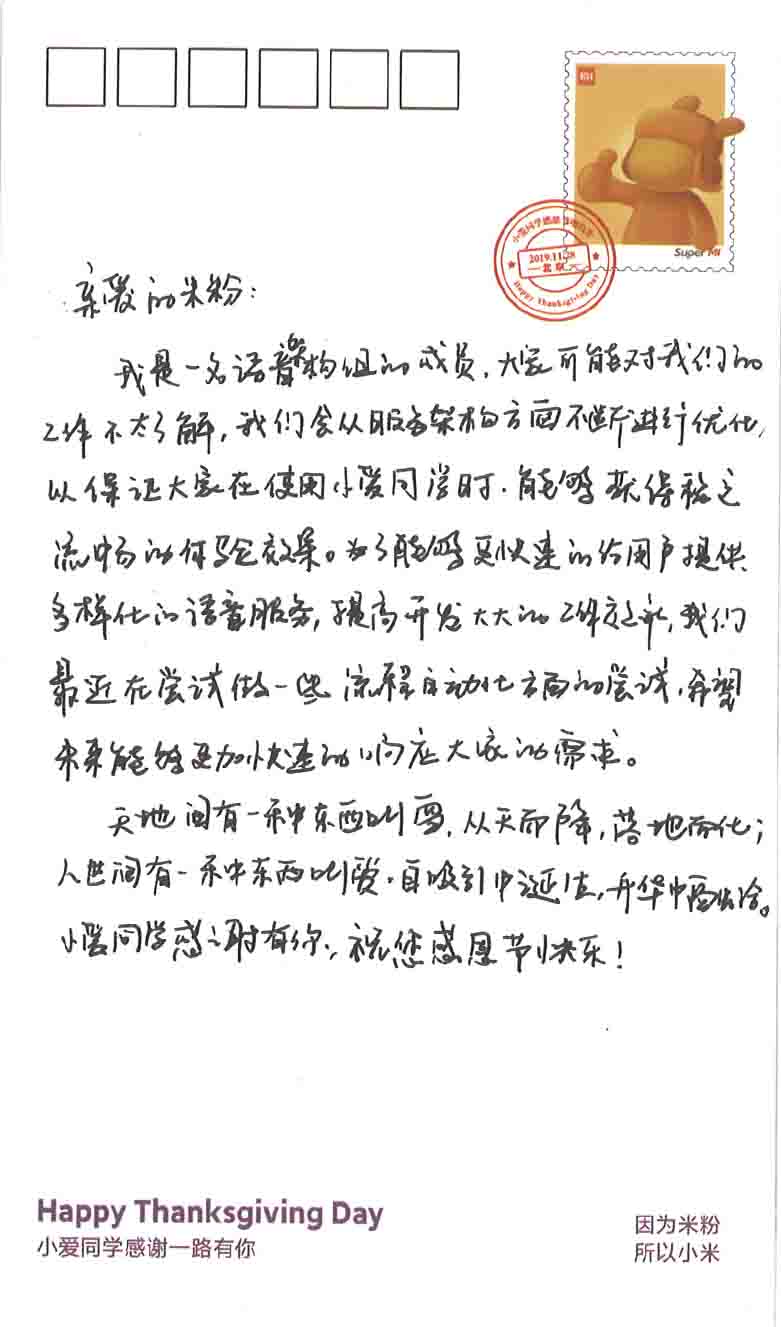 Super MI
小爱同学感谢
2019.11.28
北京
Happy Thanksgiving Day
亲爱的米粉：
我是一名语音架构组的成员，大家可能对我们的
工作不太了解，我们会从服务架构方面不断进行优化，
以保证大家在使用小爱同学时，能够获得稳定
流畅的体验效果。为了能够更快速的给用户提供
多样化的语音服务，提高开发大大的工作效率，我们
最近在尝试做一些流程自动化方面的尝试，希望
未来能够更加快速的响应大家的需求。
天地间有一种东西叫雪，从天而降，落地而化；
人世间有一种东西叫爱，自吸引中诞生，升华中
小爱同学感谢有你，祝您感恩节快乐！
Happy Thanksgiving Day
小爱同学感谢一路有你
因为米粉
所以小米